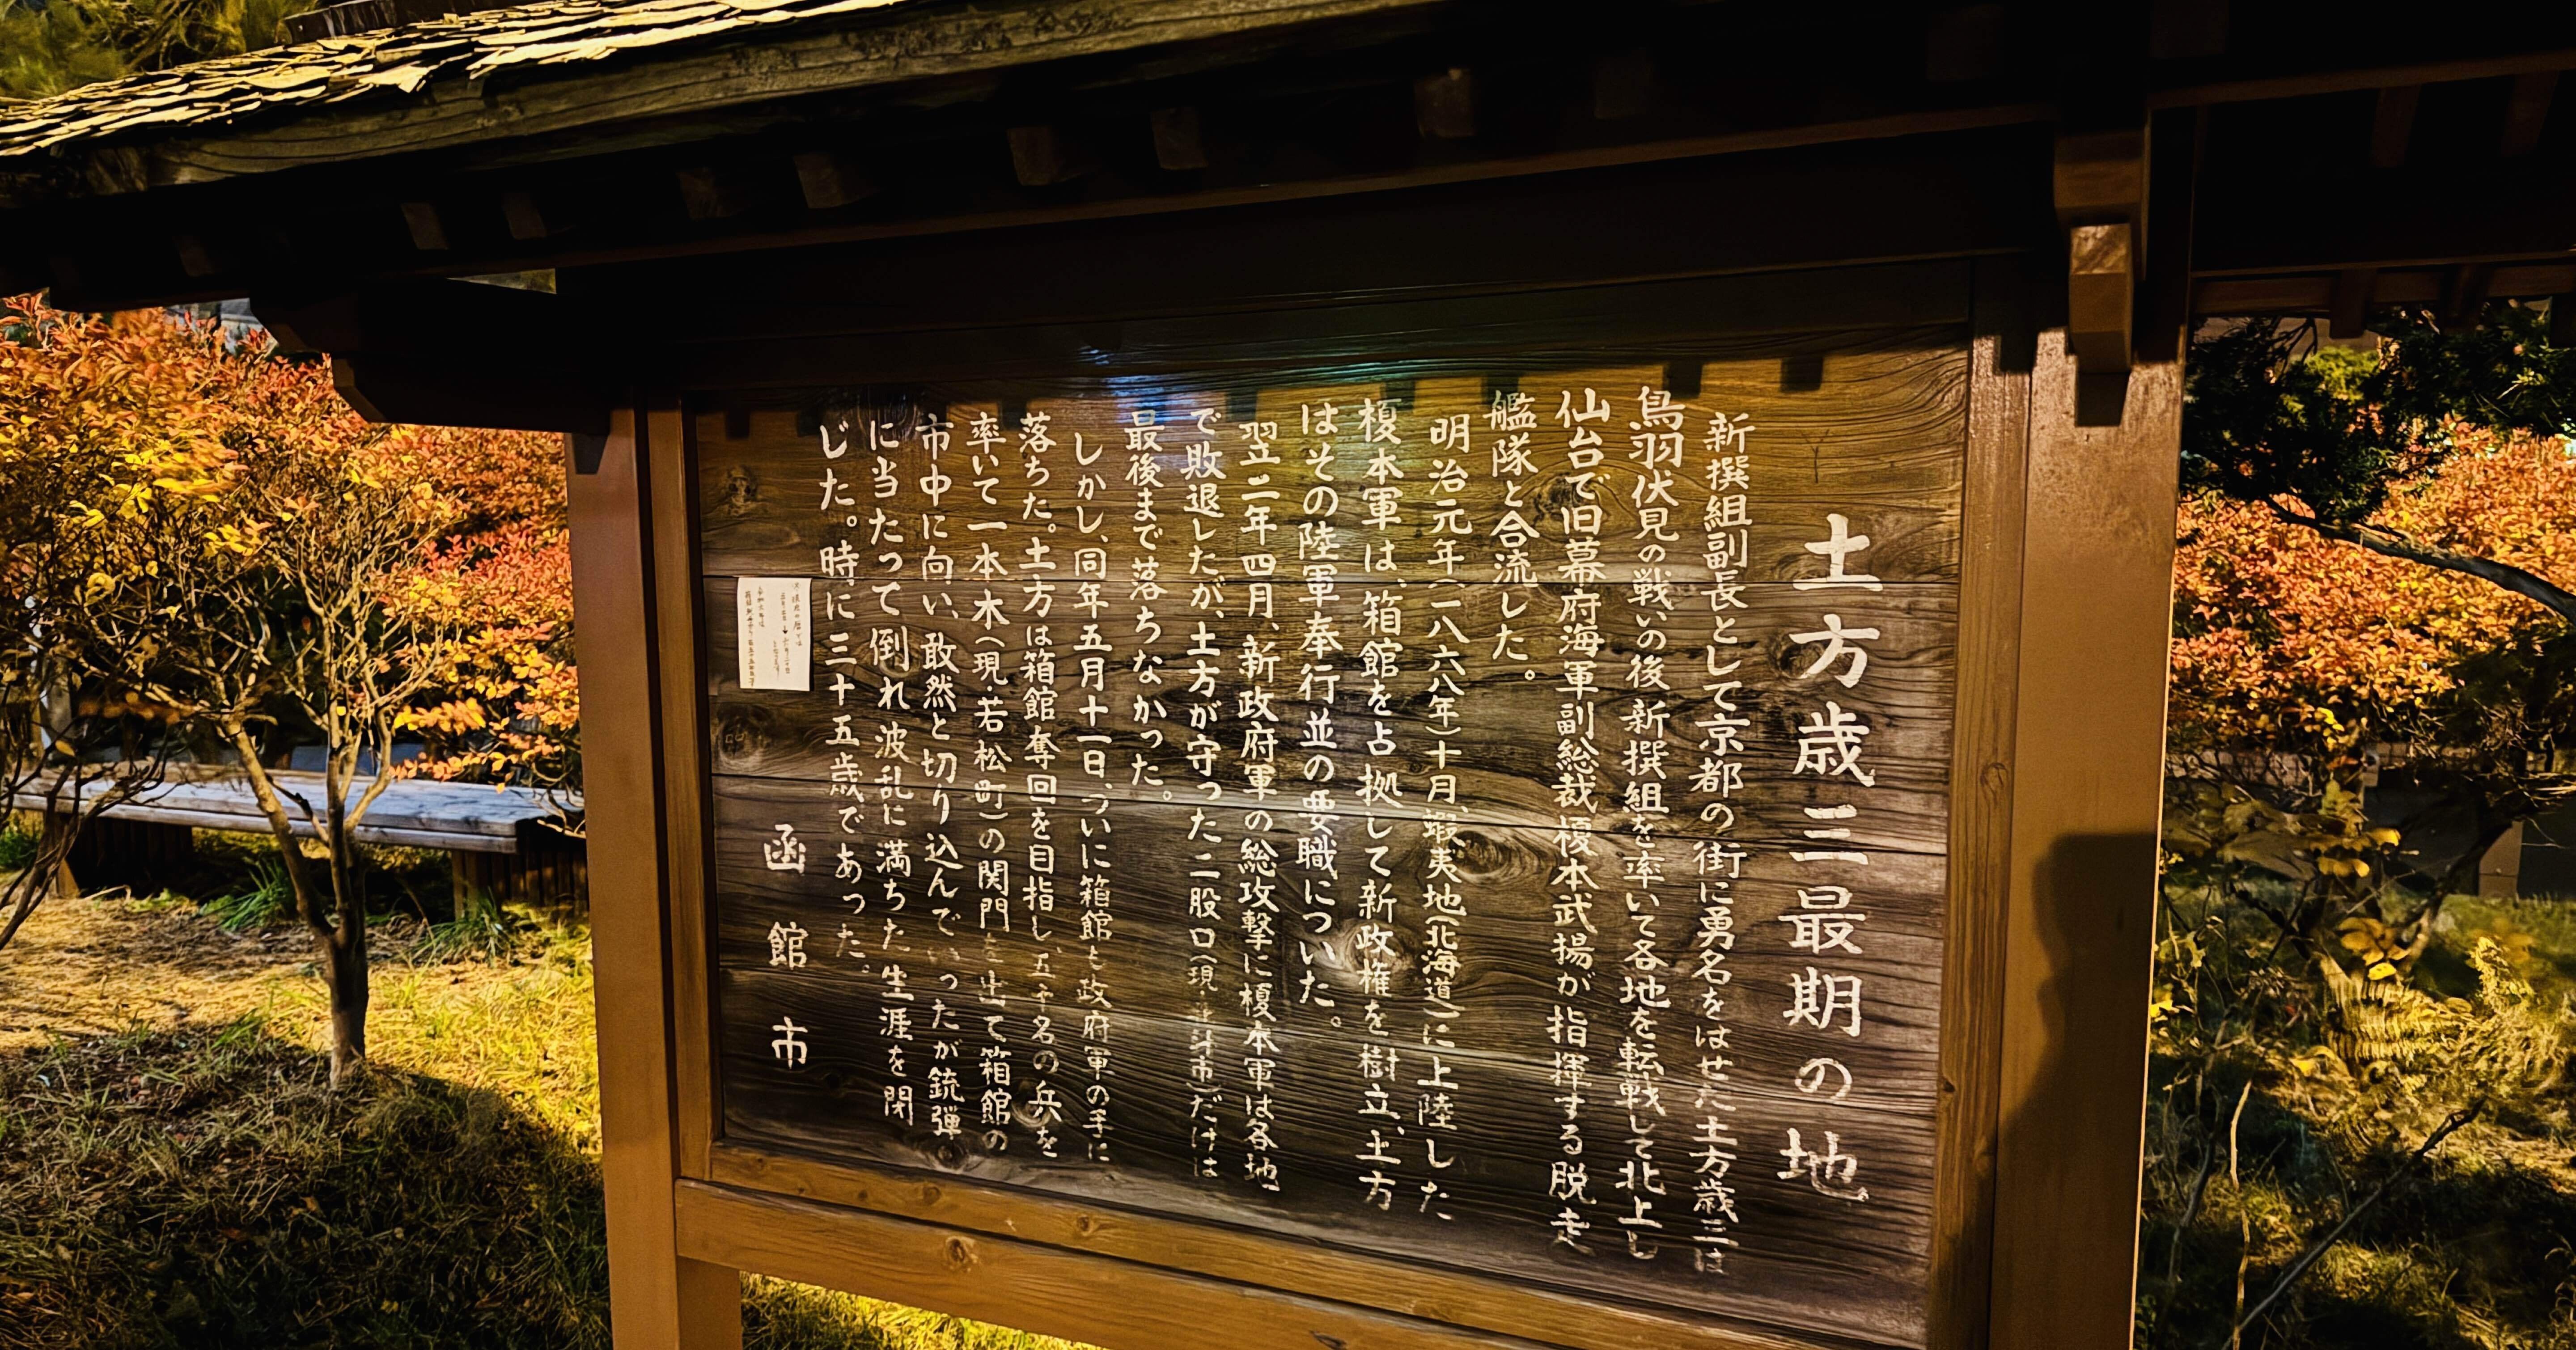 土方歳三最期の地
新撰組副長として京都の街に勇名をはせた土方歳三は
鳥羽伏見の戦いの後新撰組を率いて各地を転戦して北上し
仙台で旧幕府海軍副総裁榎本武揚が指揮する脱走
艦隊と合流した。
明治元年(一八六八年)十月、蝦夷地(北海道)に上陸した
榎本軍は、箱館を占拠して新政権を樹立、土方
はその陸軍奉行並の要職についた。
翌二年四月、新政府軍の総攻撃に榎本軍は各地
で敗退したが、土方が守った二股口(現・斗市)だけは
最後まで落ちなかった。
しかし、同年五月十一日、ついに箱館も政府軍の手に
落ちた。土方は箱館奪回を目指し、五十名の兵を
率いて一本木(現・若松町)の関門を出て箱館の
市中に向い、敢然と切り込んでいったが銃弾
に当たって倒れ波乱に満ちた生涯を閉
じた。時に三十五歳であった。
函館市